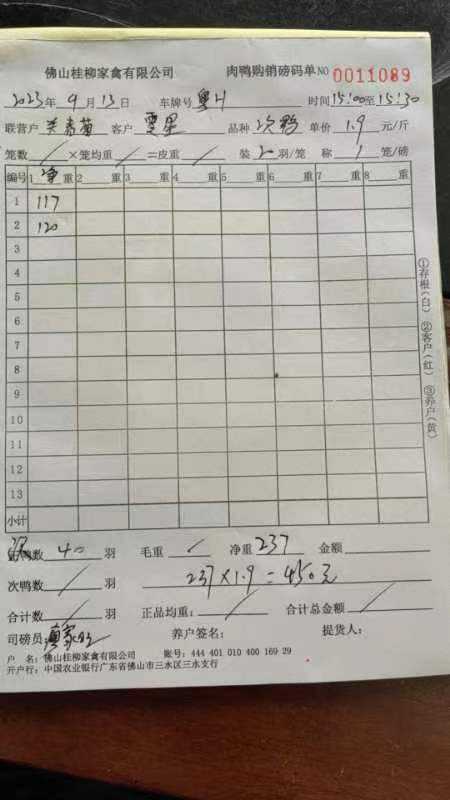 佛山桂柳家禽有限公司 肉鸭购销磅码单 NO 0011089
2023年 9月 13日 车牌号 粤H 时间 15:00至 15:30
联营户 客户 品种 次鸭 单价 1.9 元/斤
笼数 / ×笼均重 / =皮重 / 装 2 羽/笼 称 1 笼/磅
编号 1 净 重 2 重 3 重 4 重 5 重 6 重 7 重 8 重
1 117
2 120
3
4
5
6
7
8
9
10
11
12
13
小计
鸭数 40 羽 毛重 / 净重 237 金额
次鸭数 / 羽 237×1.9=450元
合计数 / 羽 正品均重: / 合计总金额 /
司磅员: 养户签名: 提货人:
户 名: 佛山桂柳家禽有限公司 账号: 444 401 010 400 169 29
开户行: 中国农业银行广东省佛山市三水区三水支行
①存根(白) ②客户(红) ③养户(黄)